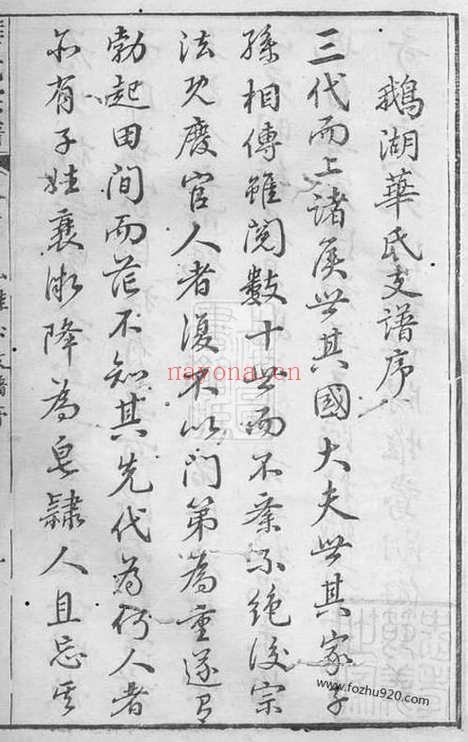 鵝湖華氏支譜序
三代而上諸侯世其國大夫世其家子
孫相傳雖閱數十世而不紊不絕後宗
法既廢官人者復不以門第為重遂有
勃起田間而茫不知其先代為何人者
亦有子姓衰微降為皂隸人且忘其
nayona.cn
www.fozhu920.com